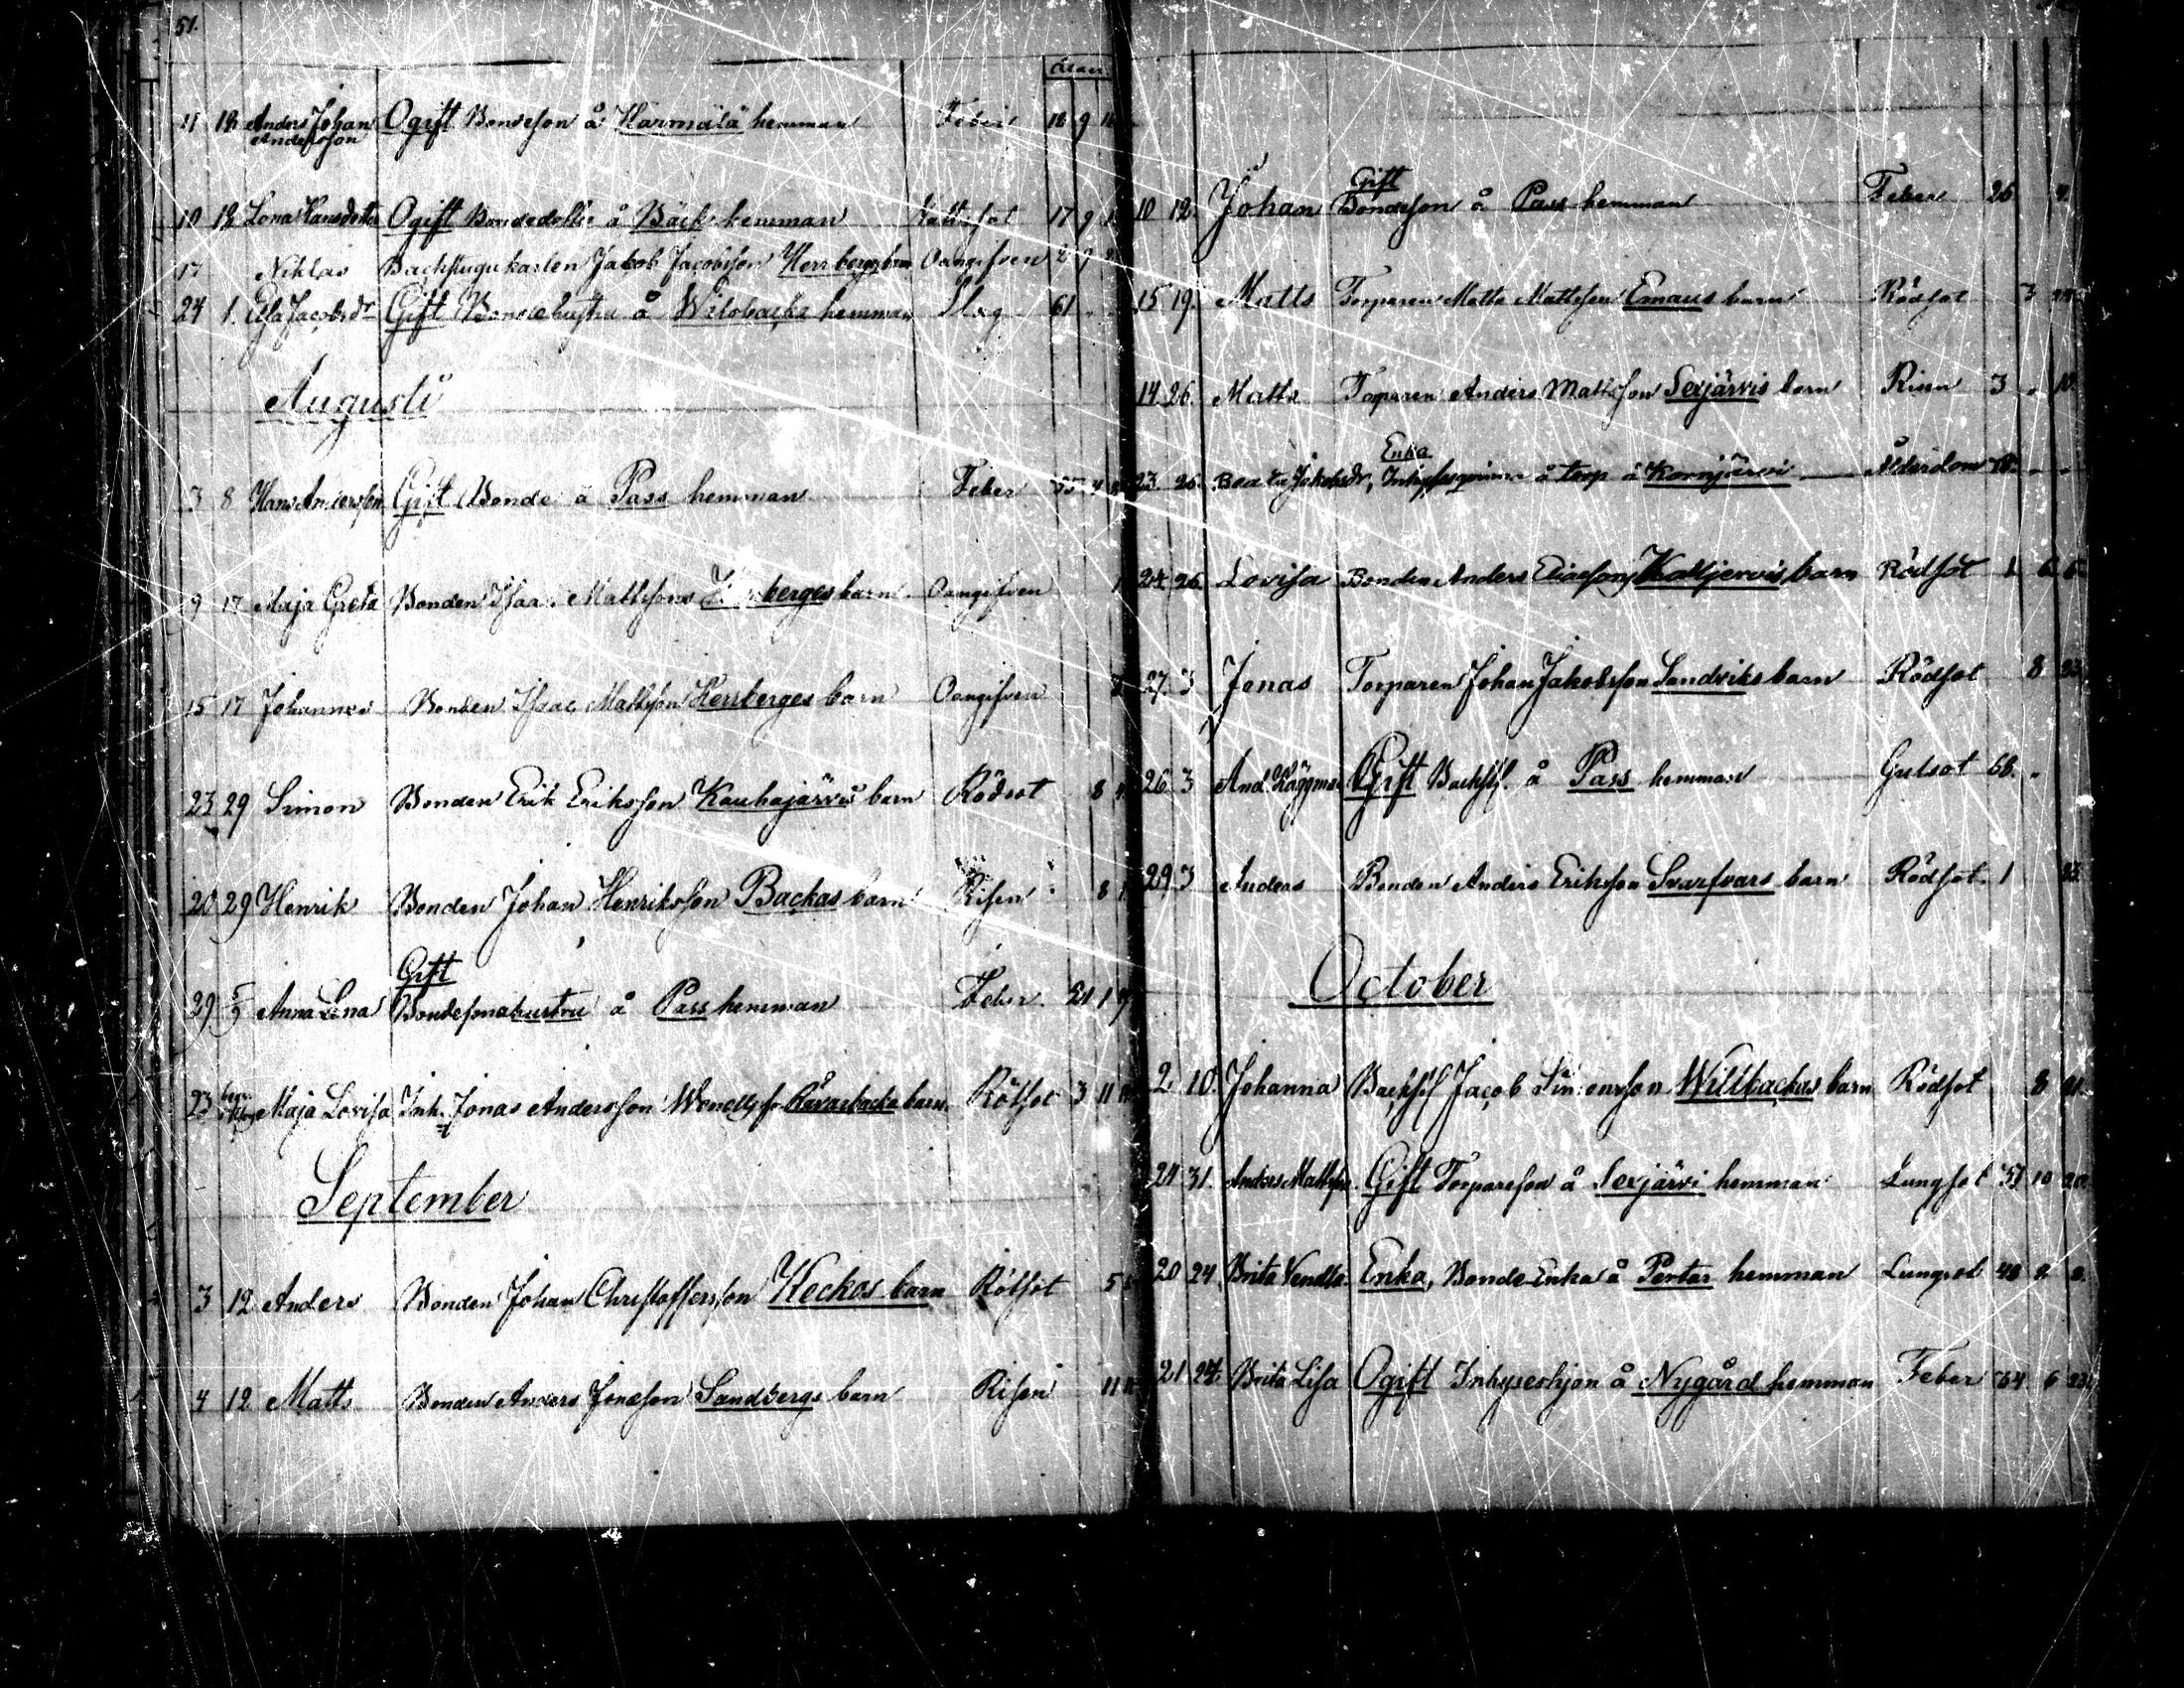 51.
Ålder
11 18 Anders Johan Andersson Ogift Bondeson å Härmälä hemman Feber 18 9
10 18 Lena Hansdotter Ogift Bondedotter å Bäck hemman 17 9
17 Niklas Backstugukarlen Jakob Jacobsson Herrbergs barn Oangifven 2 9
24 1. Jacobsdr Gift Bondehustru å hemman Slag 61 "
Augusti
3 8 Hans Andersson Gift Bonde å Pass hemman Feber 55 4
9 17 Maja Greta Bonden Isaac Mattssons barn Oangifven
15 17 Johannes Bonden Isac Mattsson Herrberges barn Oangifven
23 29 Simon Bonden Erik Eriksson Kauhajärvis barn Rödsot 8
20 29 Henrik Bonden Johan Henriksson Backas barn Risen 8
Gift
29 5/9 Anna Lena Bondesonahustru å Pass hemman Feber 21 1
23 Maja Lovisa Inh. Jonas Andersson Råvarbacka barn Rötsot 3 11
September
3 12 Anders Bonden Johan Christoffersson Heckos barn Rötsot 5
4 12 Matts Bonden Anders Jonasson Sandbergs barn Risen 11
Gift
10 12. Johan Bondeson å Pass hemman Feber 26 "
15 19. Matts Torparen Matts Mattsson Emaus barn Rödsot 3
14 26. Matts Torparen Anders Mattsson Sexjärvis barn Risen 3 " 10
Enka
23 26. Beata Jakobsdr, Inhysesqvinna å torp å Kornjärvi Ålderdom 78 " "
24 26. Lovisa Bonden Anders Eliassons barn Rödsot 1 6 6
27. 3 Jonas Torparen Johan Jakobsson Sandviks barn Rödsot 8 23
26 3 And. Häggman Gift Backstf. å Pass hemman Gulsot 66. "
29 3 Anders Bonden Anders Eriksson Svarfvars barn Rödsot. 1 23
October
2 10. Johanna Backstf Jacob Simonsson Willbackas barn Rödsot 8 21.
21 31. Anders Mattsson Gift Torpareson å Sexjärvi hemman Lungsot 51 10 20
20 24 Brita Vendla. Enka, Bonde Enka å Pertas hemman Lungsot 40 2
21 24. Brita Lisa Ogift Inhyseshjon å Nygård hemman Feber 64 6 23